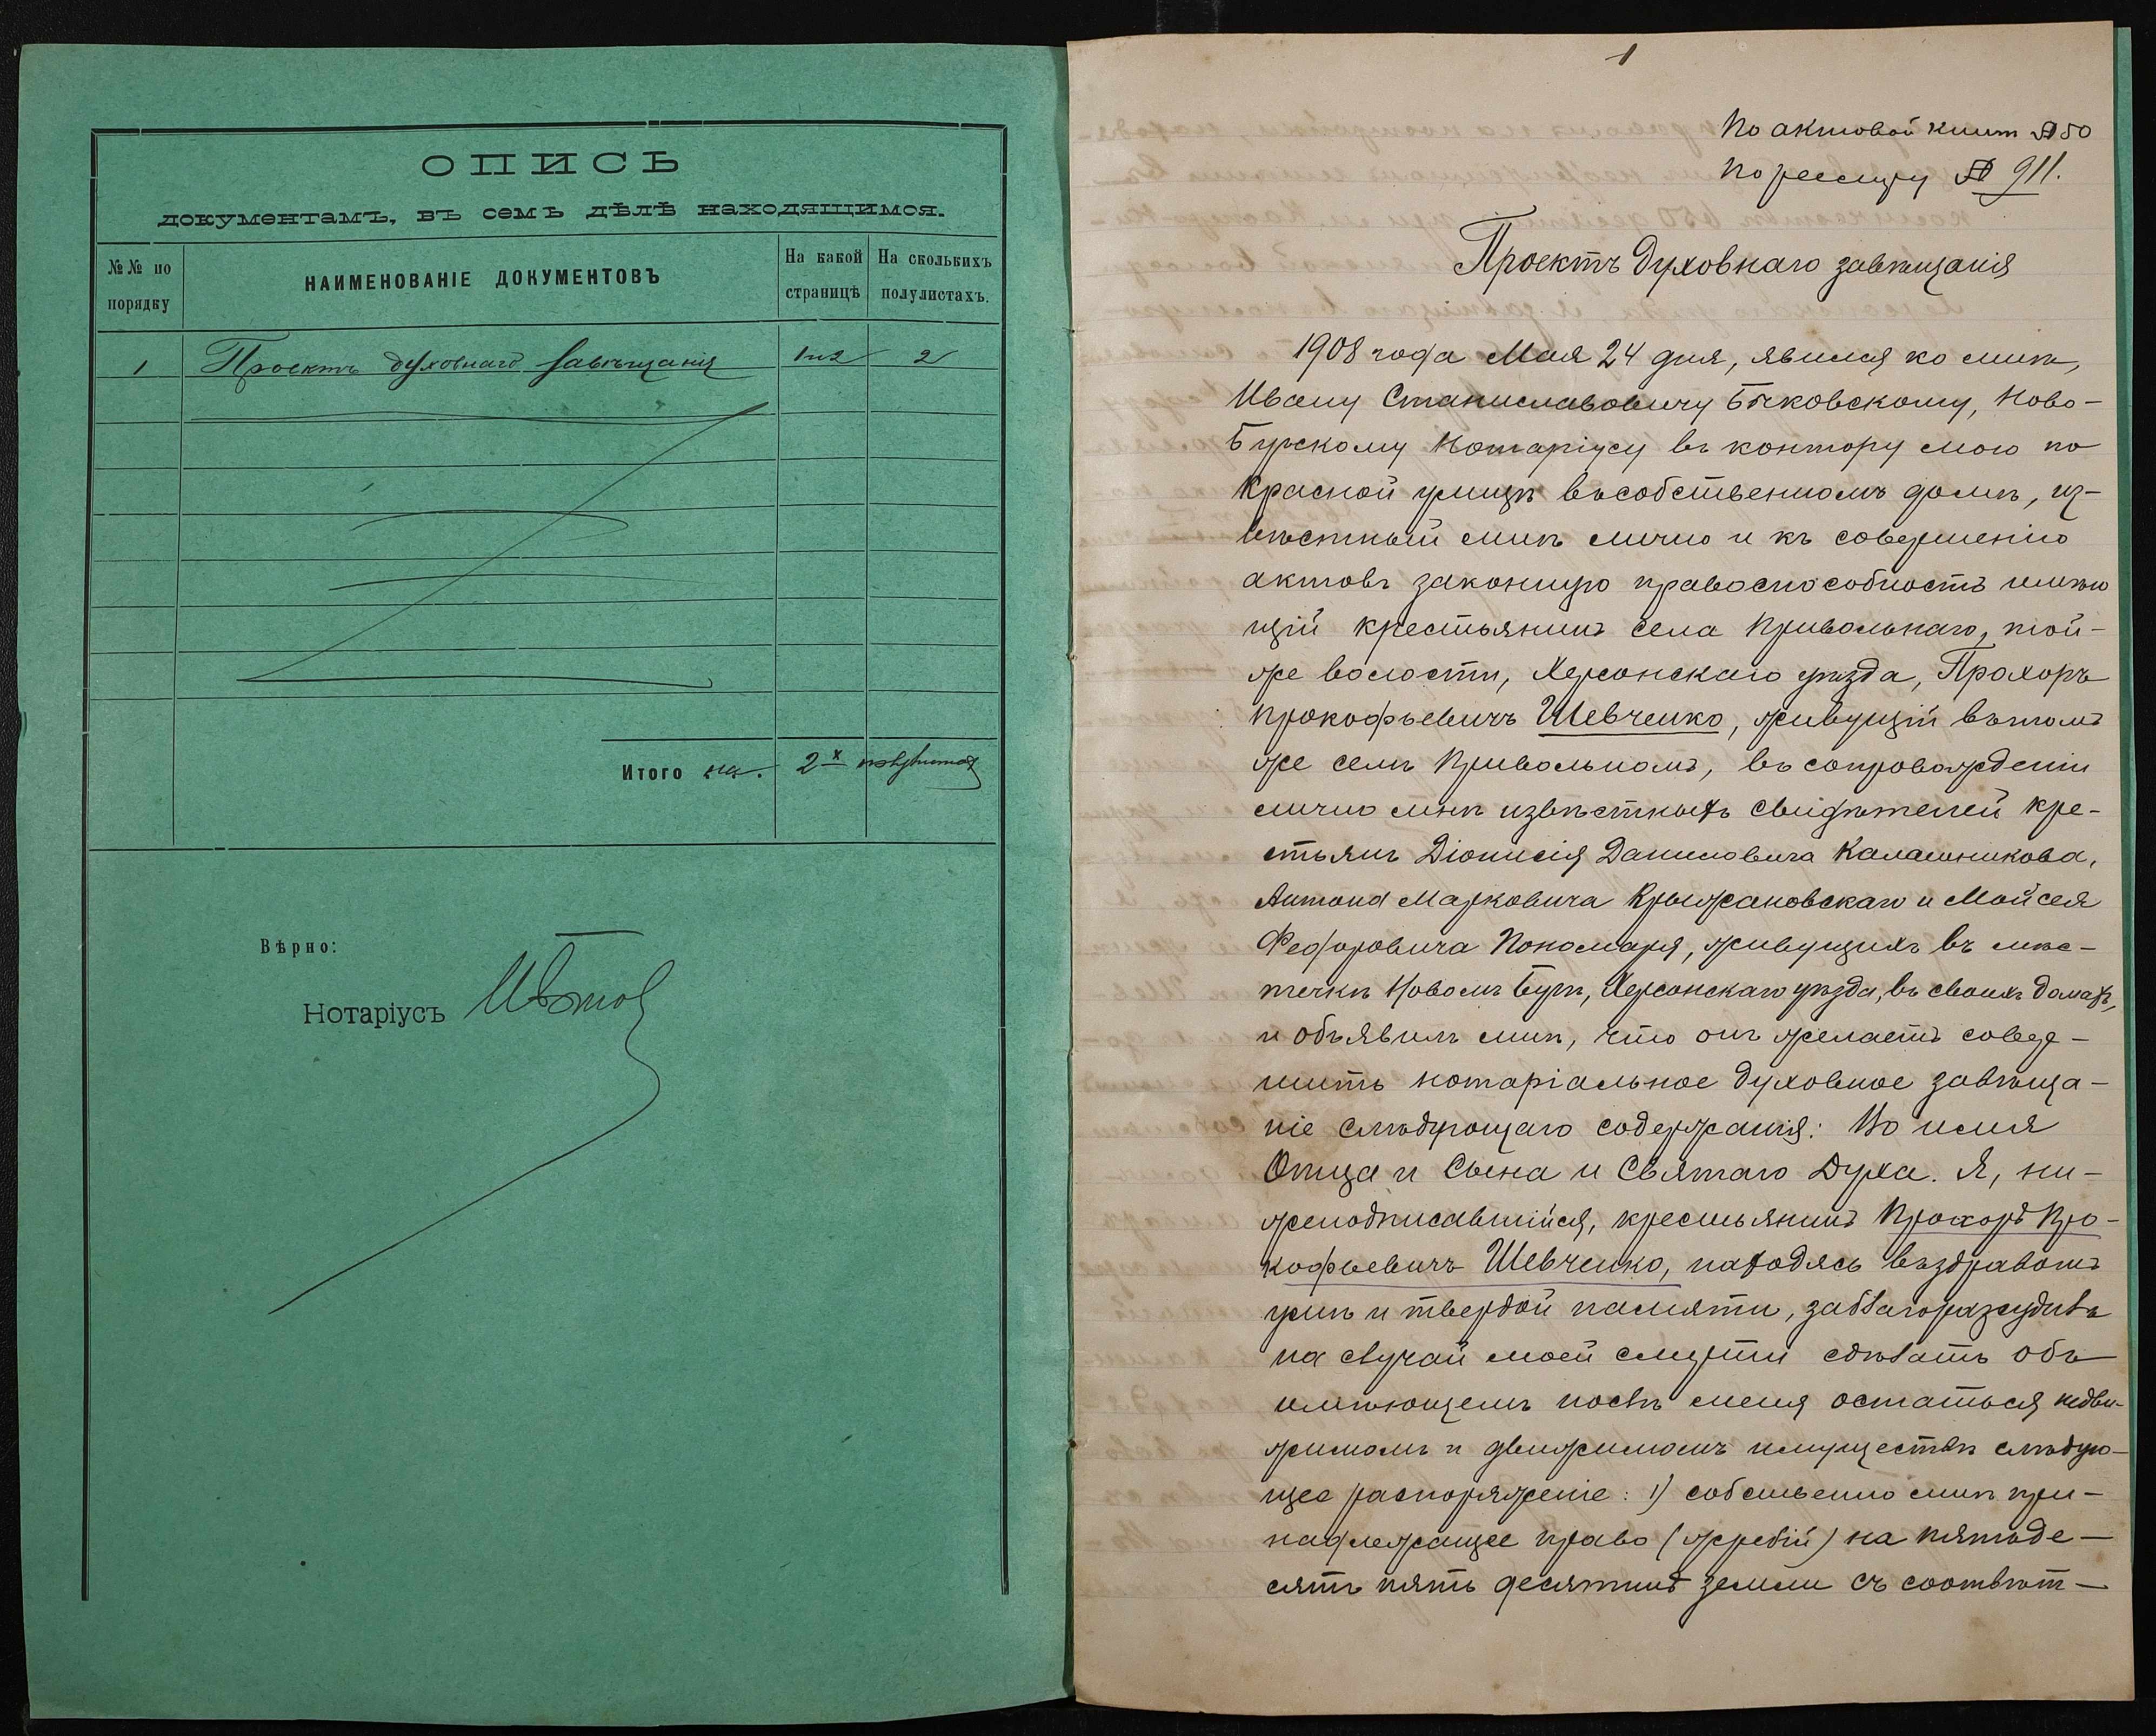 ОПИСЬ
документамъ, въ семъ дѣлѣ находящимся.
№№ по порядку
НАИМЕНОВАНІЕ ДОКУМЕНТОВЪ
На какой страницѣ
На сколькихъ полулистахъ.
1 Проектъ духовнаго завѣщанія 1 и 2 2
Итого на. 2х полулистах
Вѣрно:
Нотаріусъ
1
По актовой книгѣ № 50
По реестру № 911.
Проектъ духовнаго завѣщанія
1908 года Мая 24 дня, явился ко мнѣ,
Ивану Станиславовичу Бѣчковскому, Ново-
Бугскому Нотаріусу въ контору мою по
Красной улицѣ въ собственномъ домѣ, из-
вѣстный мнѣ лично и къ совершенію
актовъ законную правоспособность имѣю
щій крестьянинъ села Привольнаго, той-
же волости, Херсонскаго уѣзда, Прохоръ
Прокофьевичъ Шевченко, живущій въ томъ
же селѣ Привольномъ, въ сопровожденіи
лично мнѣ извѣстныхъ свидѣтелей кре-
стьянъ Діонисія Даниловича Калашникова,
Антона Марковича Крыжановскаго и Мойсея
Федоровича Пономаря, живущихъ въ мѣс-
течкѣ Новомъ Бугѣ, Херсонскаго уѣзда, въ своихъ домахъ,
и объявилъ мнѣ, что онъ желаетъ совер-
шить нотаріальное духовное завѣща-
ніе слѣдующаго содержанія: Во имя
Отца и Сына и Святаго Духа. Я, ни-
жеподписавшійся, крестьянинъ Прохоръ Про-
кофьевичъ Шевченко, находясь въ здравомъ
умѣ и твердой памяти, заблагоразсудилъ
на случай моей смерти сдѣлать объ
имѣющемъ послѣ меня остаться недви-
жимомъ и движимомъ имуществѣ слѣдую-
щее распоряженіе: 1) собственно мнѣ при-
надлежащее право (жребій) на пятьде-
сятъ пять десятинъ земли съ соотвѣт-